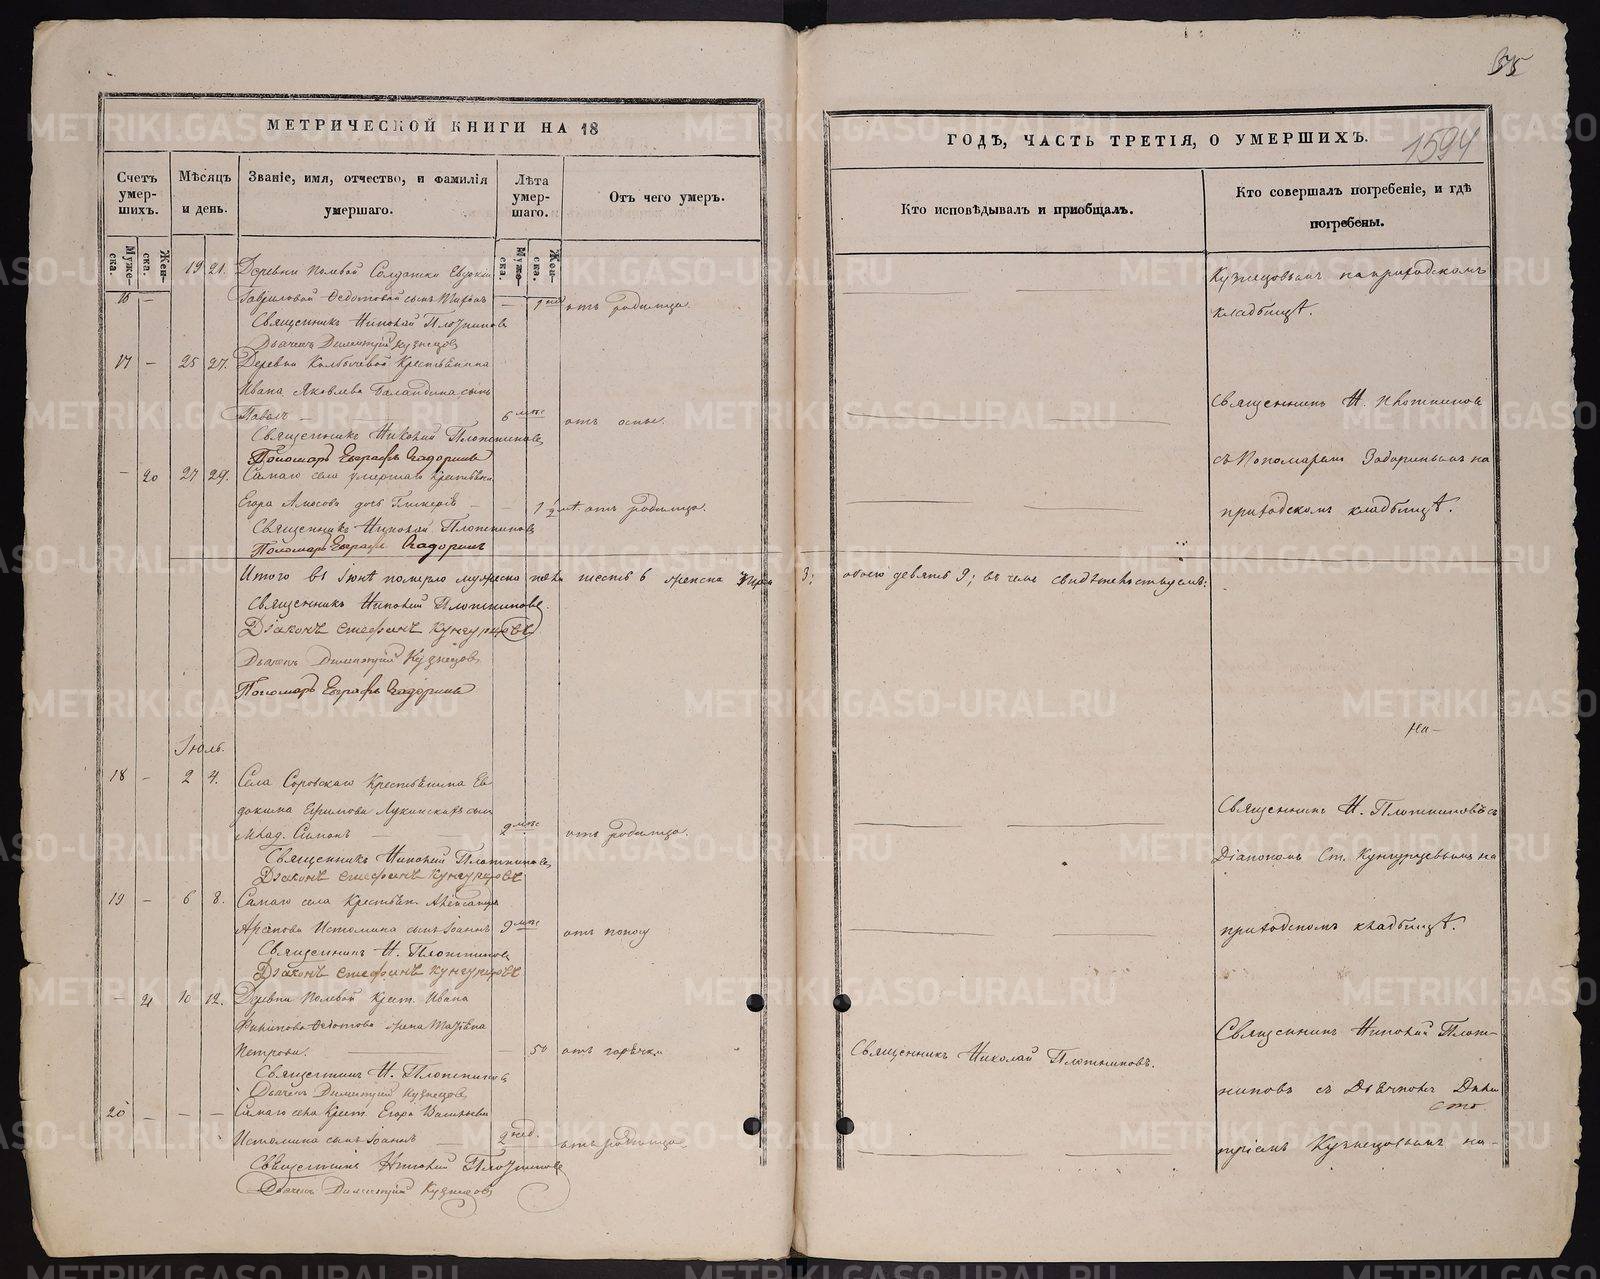 55
1594
МЕТРИЧЕСКОЙ КНИГИ НА 18
ГОДЪ, ЧАСТЬ ТРЕТІЯ, О УМЕРШИХЪ.
Счетъ умер-шихъ.
Мѣсяцъ и день.
Званіе, имя, отчество, и фамилія умершаго.
Лѣта умер-шаго.
Отъ чего умеръ.
Кто исповѣдывалъ и пріобщалъ.
Кто совершалъ погребеніе, и гдѣ погребены.
Муже-ска.
Жен-ска.
Муже-ска.
Жен-ска.
19 21. Деревни Полевой Солдатки Евдокіи
16 — Гавриловой Ѳедотовой сынъ — 1 нед отъ родимца.
Священникъ Николай Плотниковъ
Дьячекъ Димитрій Кузнецовъ
Кузнецовымъ на приходскомъ
кладбищѣ.
17 — 25 27. Деревни Крестьянина
Ивана Яковлева Баландина сынъ
Павелъ — 6 мѣс отъ оспы.
Священникъ Николай Плотниковъ
Пономарь Евграфъ Задоринъ
Священникъ Н. Плотниковъ
съ Пономаремъ Задоринымъ на
приходскомъ кладбищѣ.
— 20 27 29. Самаго села умершаго Крестьян.
Егора Амосова дочь Гликерія — 1 1/2 м. отъ родимца.
Священникъ Николай Плотниковъ
Пономарь Евграфъ Задоринъ
Итого въ Іюнѣ померло мужеска пола шесть 6 женска три 3; обоего девять 9; въ чемъ свидѣтельствуемъ:
Священникъ Николай Плотниковъ.
Діаконъ Стефанъ Кунгурцовъ
Дьячекъ Димитрій Кузнецовъ
Пономарь Евграфъ Задоринъ
Іюль.
на—
18 — 2 4. Села Соровскаго Крестьянина Ев
докима Ефимова Лукинскихъ сынъ
млад. Симонъ — 2 мѣс отъ родимца.
Священникъ Николай Плотниковъ
Діаконъ Стефанъ Кунгурцовъ
Священникъ Н. Плотниковъ съ
Діакономъ Ст. Кунгурцовымъ на
приходскомъ кладбищѣ.
19 — 6 8. Самаго села Крестьян. Александра
Истомина сынъ Іоаннъ 9 мѣс отъ поносу
Священникъ Н. Плотниковъ
Діаконъ Стефанъ Кунгурцовъ
— 21 10 12. Деревни Полевой Крест. Ивана
Филипова Ѳедотова жена
Петрова. — 50 отъ горячки
Священникъ Николай Плотниковъ.
Священникъ Н. Плотниковъ
Дьячекъ Димитрій Кузнецовъ
Священникъ Николай Плот-
никовъ съ Дьячкомъ Дими
тріемъ Кузнецовымъ на-
20 — — — Самаго села Крест. Егора Васильева
Истомина сынъ Іоаннъ — 2 нед. отъ родимца
Священникъ Николай Плотниковъ
Дьячекъ Димитрій Кузнецовъ
METRIKI.GASO-URAL.RU